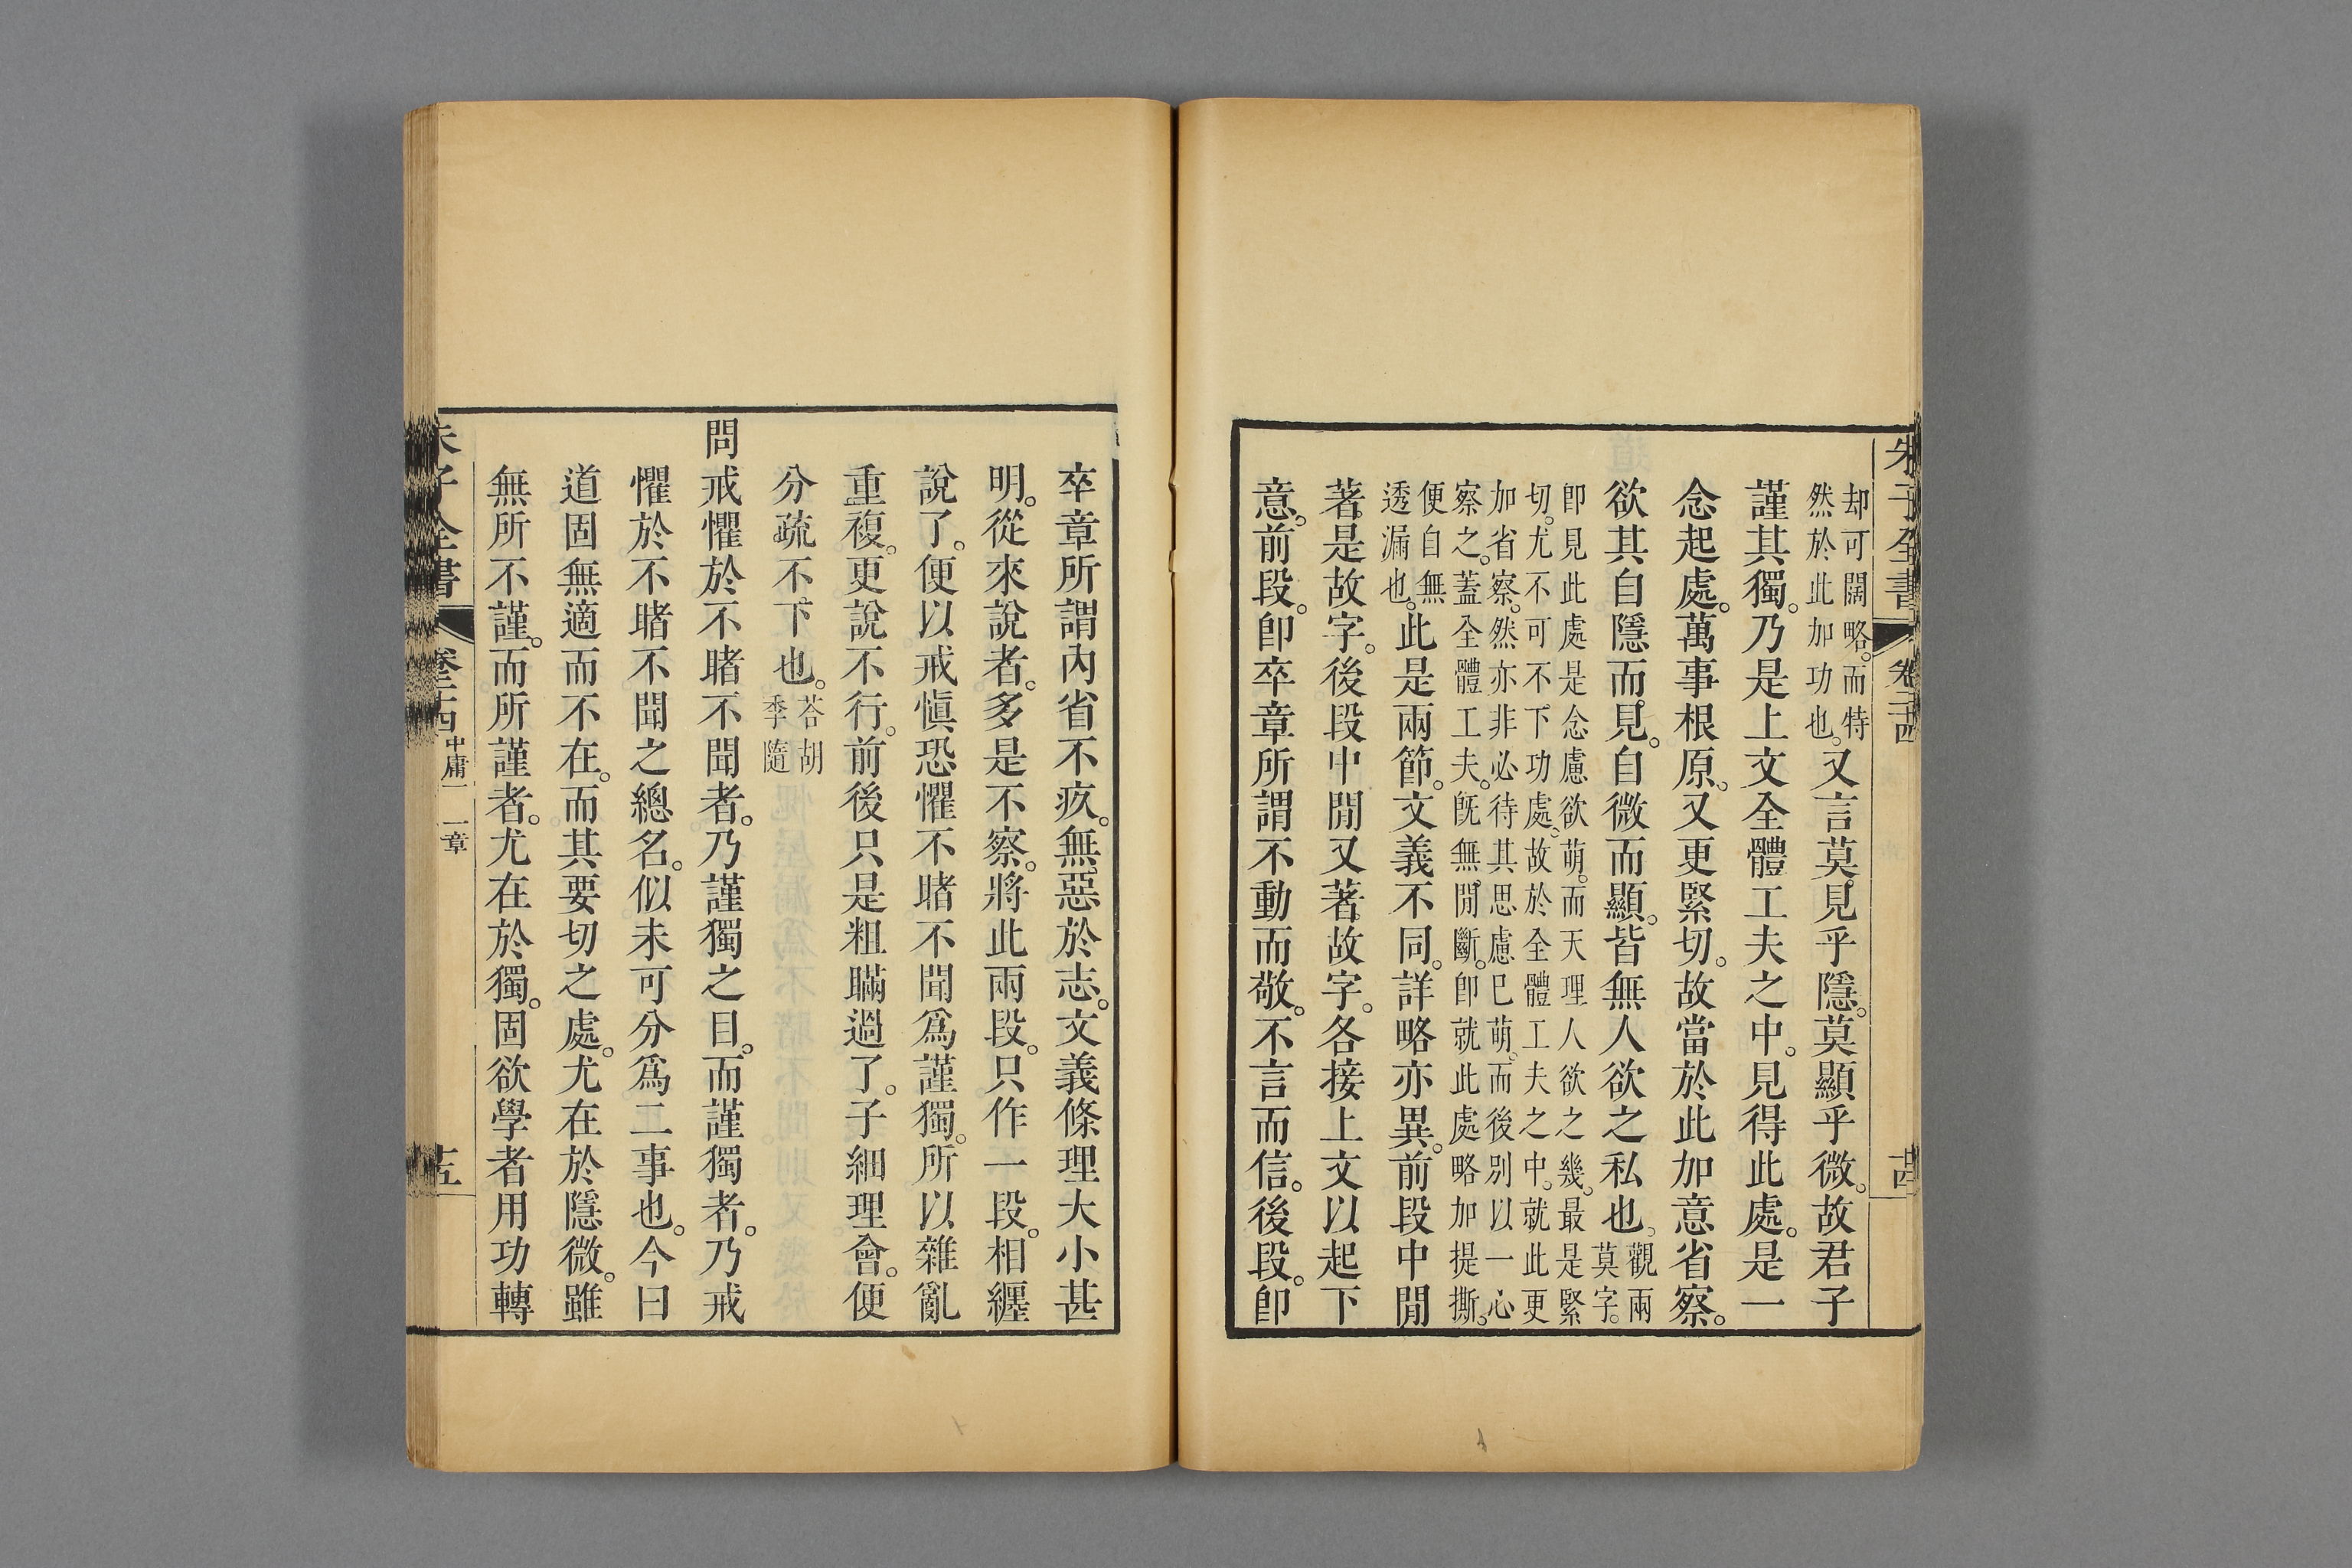 朱子全書 卷二十四 十四
却可闊略。而特
然於此加功也。
又言莫見乎隱。莫顯乎微。故君子
謹其獨。乃是上文全體工夫之中。見得此處。是一
念起處。萬事根原。又更緊切。故當於此加意省察。
欲其自隱而見。自微而顯。皆無人欲之私也。
觀兩
莫字。
卽見此處是念慮欲萌。而天理人欲之幾。最是緊
切。尤不可不下功處。故於全體工夫之中。就此更
加省察。然亦非必待其思慮已萌。而後別以一心
察之。蓋全體工夫。旣無閒斷。卽就此處略加提撕。
便自無
透漏也。
此是兩節。文義不同。詳略亦異。前段中閒
著是故字。後段中閒又著故字。各接上文以起下
意。前段。卽卒章所謂不動而敬。不言而信。後段。卽
卒章所謂內省不疚。無惡於志。文義條理大小甚
明。從來說者。多是不察。將此兩段。只作一段。相纏
說了。便以戒愼恐懼不睹不聞爲謹獨。所以雜亂
重複。更說不行。前後只是粗瞞過了。子細理會。便
分疏不下也。
荅胡
季隨
問戒懼於不睹不聞者。乃謹獨之目。而謹獨者。乃戒
懼於不睹不聞之總名。似未可分爲二事也。今曰
道固無適而不在。而其要切之處。尤在於隱微。雖
無所不謹。而所謹者。尤在於獨。固欲學者用功轉
朱子全書 卷二十四 中庸一 一章 十五